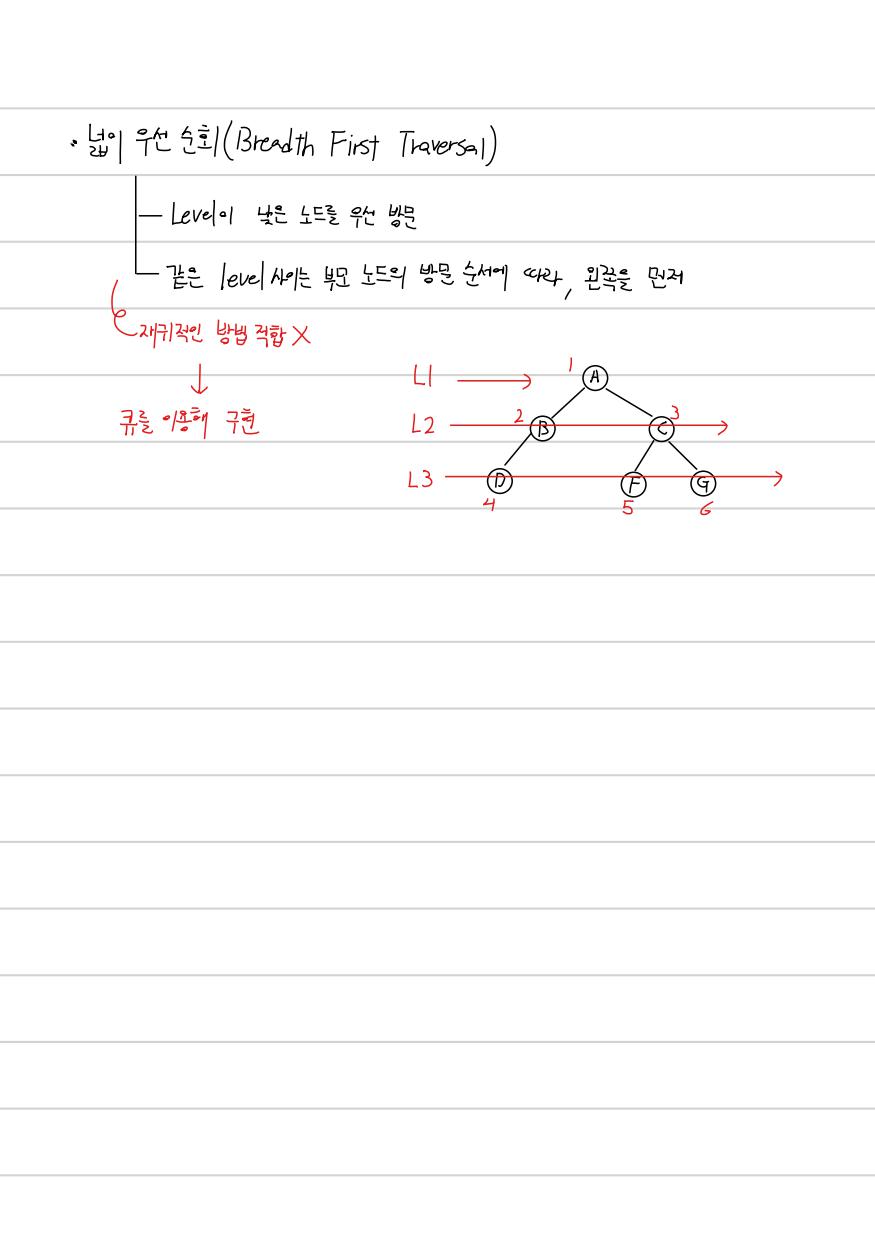 • 넓이 우선 순회(Breadth First Traversal)
Level이 낮은 노드를 우선 방문
같은 level 사이는 부모 노드의 방문 순서에 따라, 왼쪽을 먼저
재귀적인 방법 적합 X
큐를 이용해 구현
L1 1 A
L2 2 B C 3
L3 D F G
4 5 6